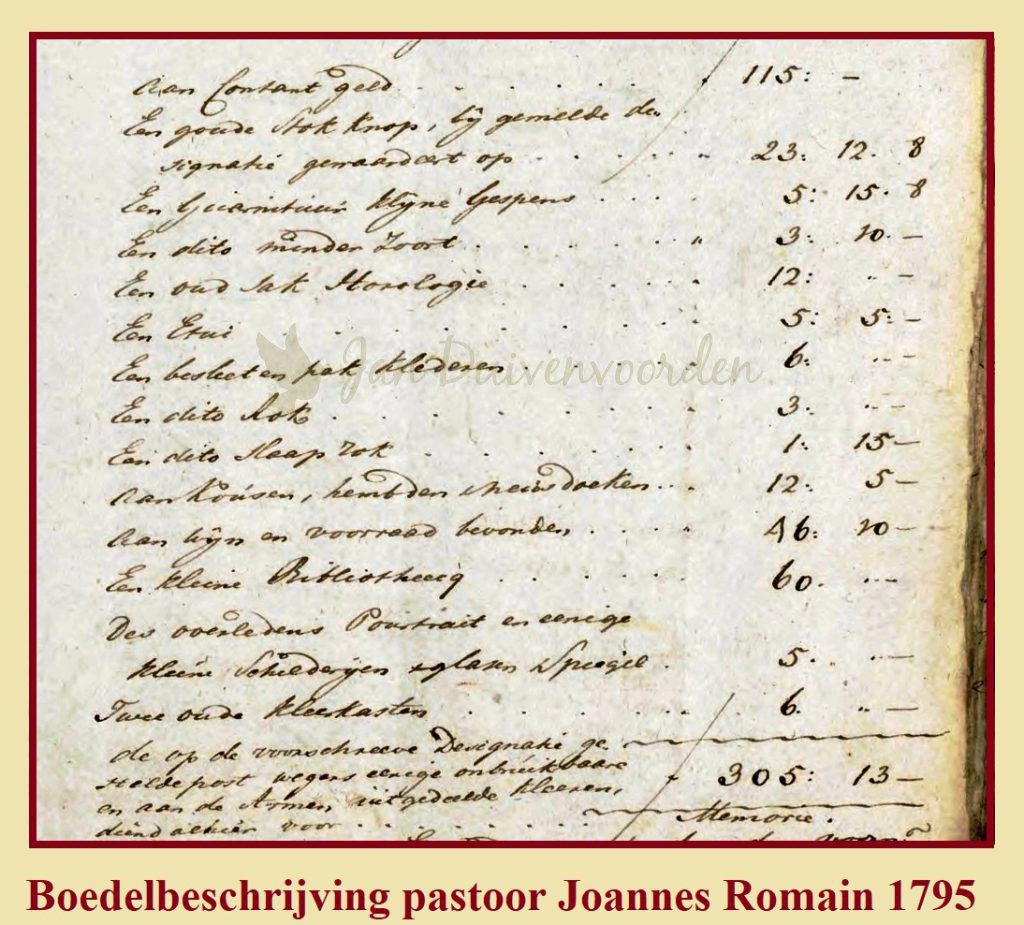 Aan Contant geld . . . . . . . 115: –
Een goude Stok Knop, bij gemelde de-
signatie gewaardeert op . . . . . 23: 12. 8
Een Guarnituur klijne Gespens . . . . 5: 15. 8
Een dito minder Zoort . . . . . . 3: 10. –
Een oud Sak Horologie . . . . . 12: .. –
Een Etui . . . . . . . . 5: 5: –
Een besleeten pak klederen . . . . 6: .. –
Een dito Rok . . . . . . . 3: .. –
Een dito Slaap rok . . . . . . 1: 15 –
Aan kousen, hembden neusdoeken . . . 12: 5 –
Aan Wijn en voorraad bevonden . . . . 46: 10 –
Een kleine Bibliotheecq . . . . . 60. .. –
Des overledens Pourtrait en eenige
kleine Schilderijen glasen Spiegel . . 5. .. –
Twee oude kleerkasten . . . . . . 6. .. –
de op de voorschreeve Designatie ge-
stelde post wegens eenige onbruikbaare . 305: 13 –
en aan de Armen uitgedeelde kleeren,
diend alhier voor . . . . . . Memorie.
Jan Duivenvoorden
Boedelbeschrijving pastoor Joannes Romain 1795